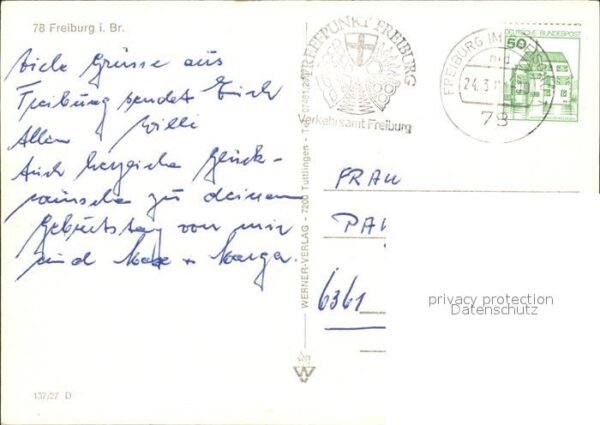 78 Freiburg i. Br.
Viele Grüsse aus
Freiburg sendet Euch
Allen Willi
Auch herzliche Glück-
wünsche zu deinem
Geburtstag von mir
und Max + Marga.
137/27 D
WERNER-VERLAG - 7200 Tuttlingen - Tel.
TREFFPUNKT FREIBURG
Verkehrsamt Freiburg
FREIBURG IM
24.3
78
DEUTSCHE BUNDESPOST
50
FRAU
PA
6361
privacy protection
Datenschutz